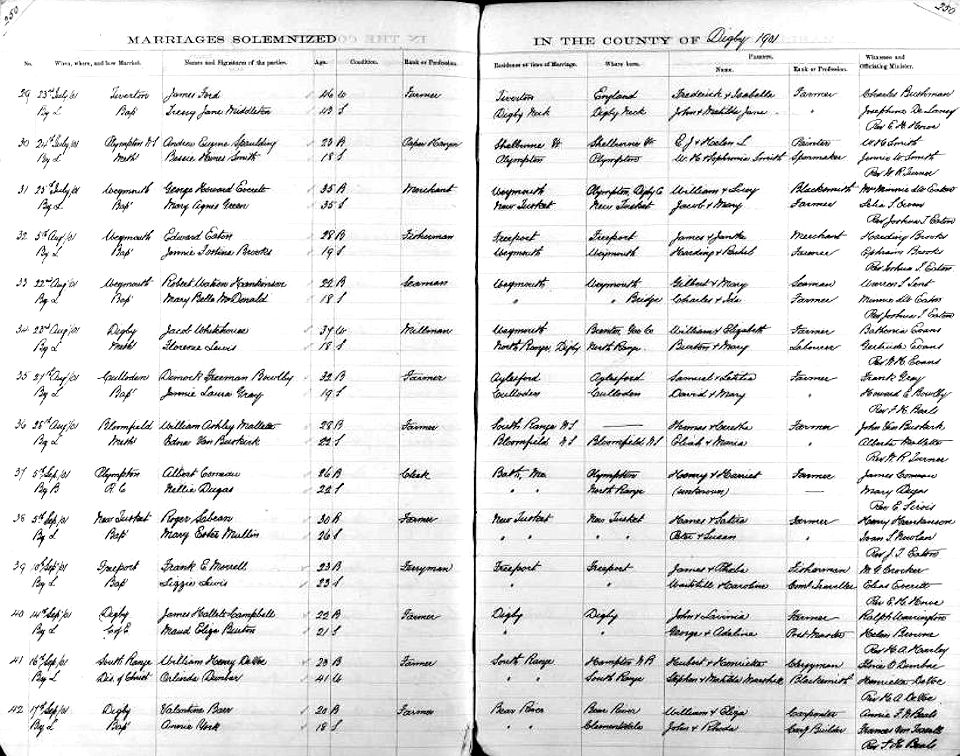 250
250
MARRIAGES SOLEMNIZED IN THE COUNTY OF Digby 1901
Parents.
No. When, where, and how Married. Names and Signatures of the parties. Age. Condition. Rank or Profession. Residence at time of Marriage. Where born. Name. Rank or Profession. Witnesses and Officiating Minister.
29 23rd July/01 Tiverton James Ford W Farmer Tiverton England Frederick & Isabella Farmer Charles Bushman
By L Bap' Jane Middleton S Digby Neck Digby Neck John & Matilda Jane " Josephine De Laney
Rev E. H. Howe
30 24th July/01 Plympton NS Andrew Eugene Spaulding 23 B Paper Hanger Shelburne E J & Helen L Painter W H Smith
By L Meth' Bessie Smith 18 S Plympton Plympton W. H & Sephronia Smith Sparmaker Jennie Smith
Rev W. R. Turner
31 Weymouth George Howard Everett 35 B Merchant Weymouth Plympton, Digby C William & Lucy Blacksmith Mrs Minnie Eaton
By L Bap' Mary Agnes Green 35 S New Tusket New Tusket Jacob & Mary Farmer
Rev Joshua T. Eaton
32 Aug/01 Weymouth Edward Eaton 28 B Fisherman Freeport Freeport James & Merchant Harding Brooks
By L Bap' Jennie Brooks 19 S Weymouth Weymouth Harding & Farmer Ephraim Brooks
Rev Joshua T. Eaton
33 22nd Aug/01 Weymouth Robert Watson Hankinson 22 B Seaman Weymouth Weymouth Gilbert & Mary Seaman
By L Bap' Mary Bella McDonald 18 S " " Bridge Charles & Ida Farmer Minnie Eaton
Rev Joshua T. Eaton
34 Aug/01 Digby Jacob Whitehouse W Millman Weymouth William & Elizabeth Farmer Bathenia Evans
By L Meth' Florence Lewis 18 S North Range, Digby North Range & Mary Labourer Gertrude Evans
Rev W. H. Evans
35 Aug/01 Culloden Dimock Freeman Bowlby 32 B Farmer Aylesford Aylesford Samuel & Letitia Farmer Frank Gray
By L Bap' Jennie Laura Gray 19 S Culloden Culloden David & Mary " Howard E. Bowlby
Rev F. H. Beals
36 Aug/01 Bloomfield William Ashley Mallett 28 B Farmer South Range N S —— Thomas & Farmer John Van Buskirk
By L Meth' Edna Van Buskirk 22 S Bloomfield N S Bloomfield N S & Maria "
Rev W. R. Turner
37 5th Sep/01 Plympton Albert Comeau 26 B Clerk Bath, Me Plympton & Harriet Farmer James Comeau
By B R. C Nellie Dugas 22 S " " North Range (unknown) —— Mary Dugas
Rev E. Sirois
38 Sep/01 New Tusket Roger Sabean 30 B Farmer New Tusket New Tusket & Farmer Henry Hankinson
By L Bap' Mary Mullin 26 S " " " " Peter & Susan " Nowlan
Rev J. T. Eaton
39 10th Sep/01 Freeport Frank E Morrell 23 B Ferryman Freeport Freeport James & Fisherman M G Crocker
By L Bap' Lizzie Lewis 23 S " " & Caroline Coml Traveller Elias Everett
Rev E. H. Howe
40 14th Sep/01 Digby James Hallett Campbell 22 B Farmer Digby Digby John & Lavinia Farmer Ralph Warrington
By L C of E Maud Eliza Burton 21 S " " George & Adeline Post Master Helen
Rev H. A. Harley
41 16th Sep/01 South Range William Henry DeVoe 23 B Farmer South Range Hampton N B Hubert & Henrietta Clergyman Dunbar
By L Dis. of Christ Orlinda Dunbar " South Range Stephen & Matilda Marshall Blacksmith Henrietta DeVoe
Rev H. A. DeVoe
42 17th Sep/01 Digby Valentine Barr 20 B Farmer Bear River Bear River William & Eliza Carpenter Annie F. Beals
By L Bap' Annie York 18 S " Clementsvale John & Rhoda Carr Builder Frances
Rev F. H. Beals